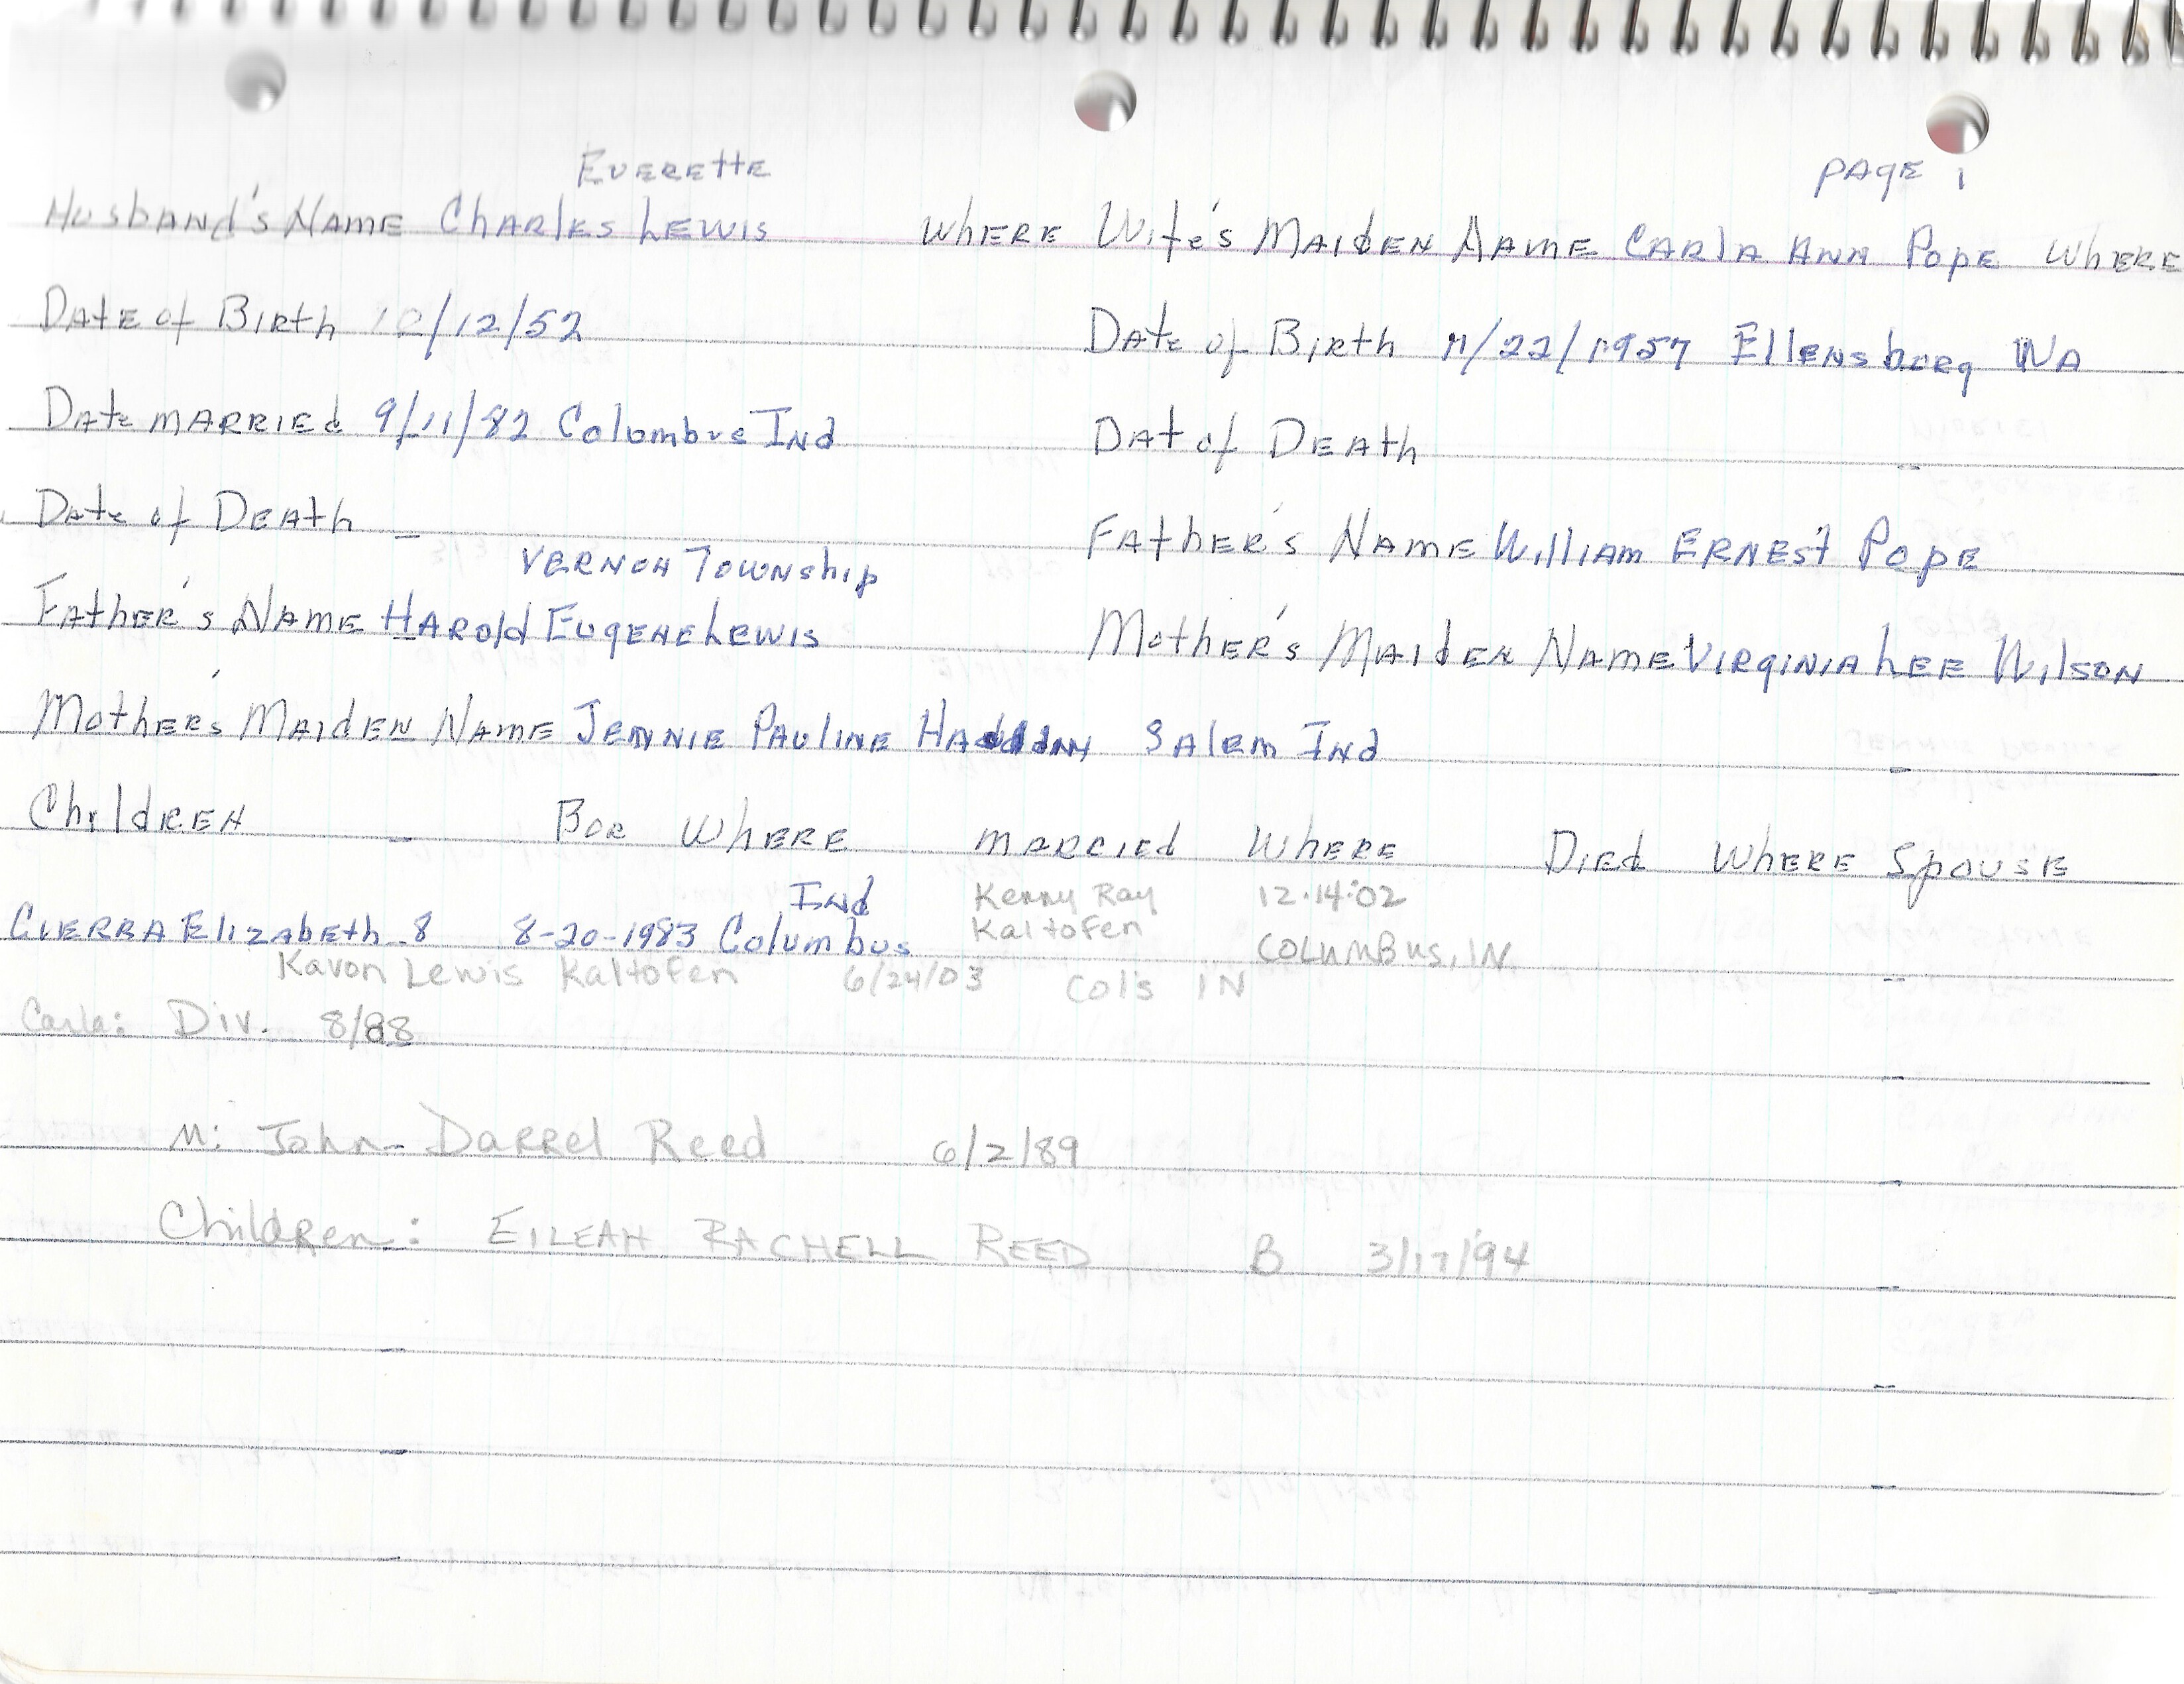 Everette
Page 1
Husband's Name Charles Lewis Where Wife's Maiden Name Carla Ann Pope Where
Date of Birth 12/12/52
Date of Birth 7/22/1957 Ellensburg WA
Date Married 9/11/82 Columbus Ind
Dat of Death
Date of Death
Father's Name William Ernest Pope
Vernon Township
Father's Name Harold Eugene Lewis
Mother's Maiden Name Virginia Lee Wilson
Mother's Maiden Name Jennie Pauline Salem Ind
Children Bor Where Married Where Died Where Spouse
Ind Kenny Ray 12.14.02
Cierra Elizabeth 8 8-20-1983 Columbus Kaltofen
Columbus, IN
Kavon Lewis Kaltofen 6/24/03 Col's IN
Carla: Div. 8/88
M: John Darrel Reed 6/2/89
Children: Eileah Rachell Reed B 3/17/94